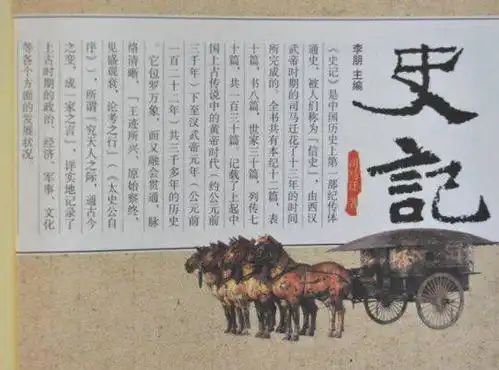 史記
司马迁 著
李朋 主编
《史记》是中国历史上第一部纪传体
通史,被人们称为「信史」,由西汉
武帝时期的司马迁花了十三年的时间
所完成的。全书共有本纪十二篇,表
十篇,书八篇,世家三十篇,列传七
十篇,共一百三十篇,记载了上起中
国上古传说中的黄帝时代(约公元前
三千年)下至汉武帝元年(公元前
一百二十二年)共三千多年的历史
。它包罗万象,而又融会贯通,脉
络清晰,「王迹所兴,原始察终,
见盛观衰,论考之行」(《太史公自
序》),所谓「究天人之际,通古今
之变,成一家之言」,详实地记录了
上古时期的政治、经济、军事、文化
等各个方面的发展状况